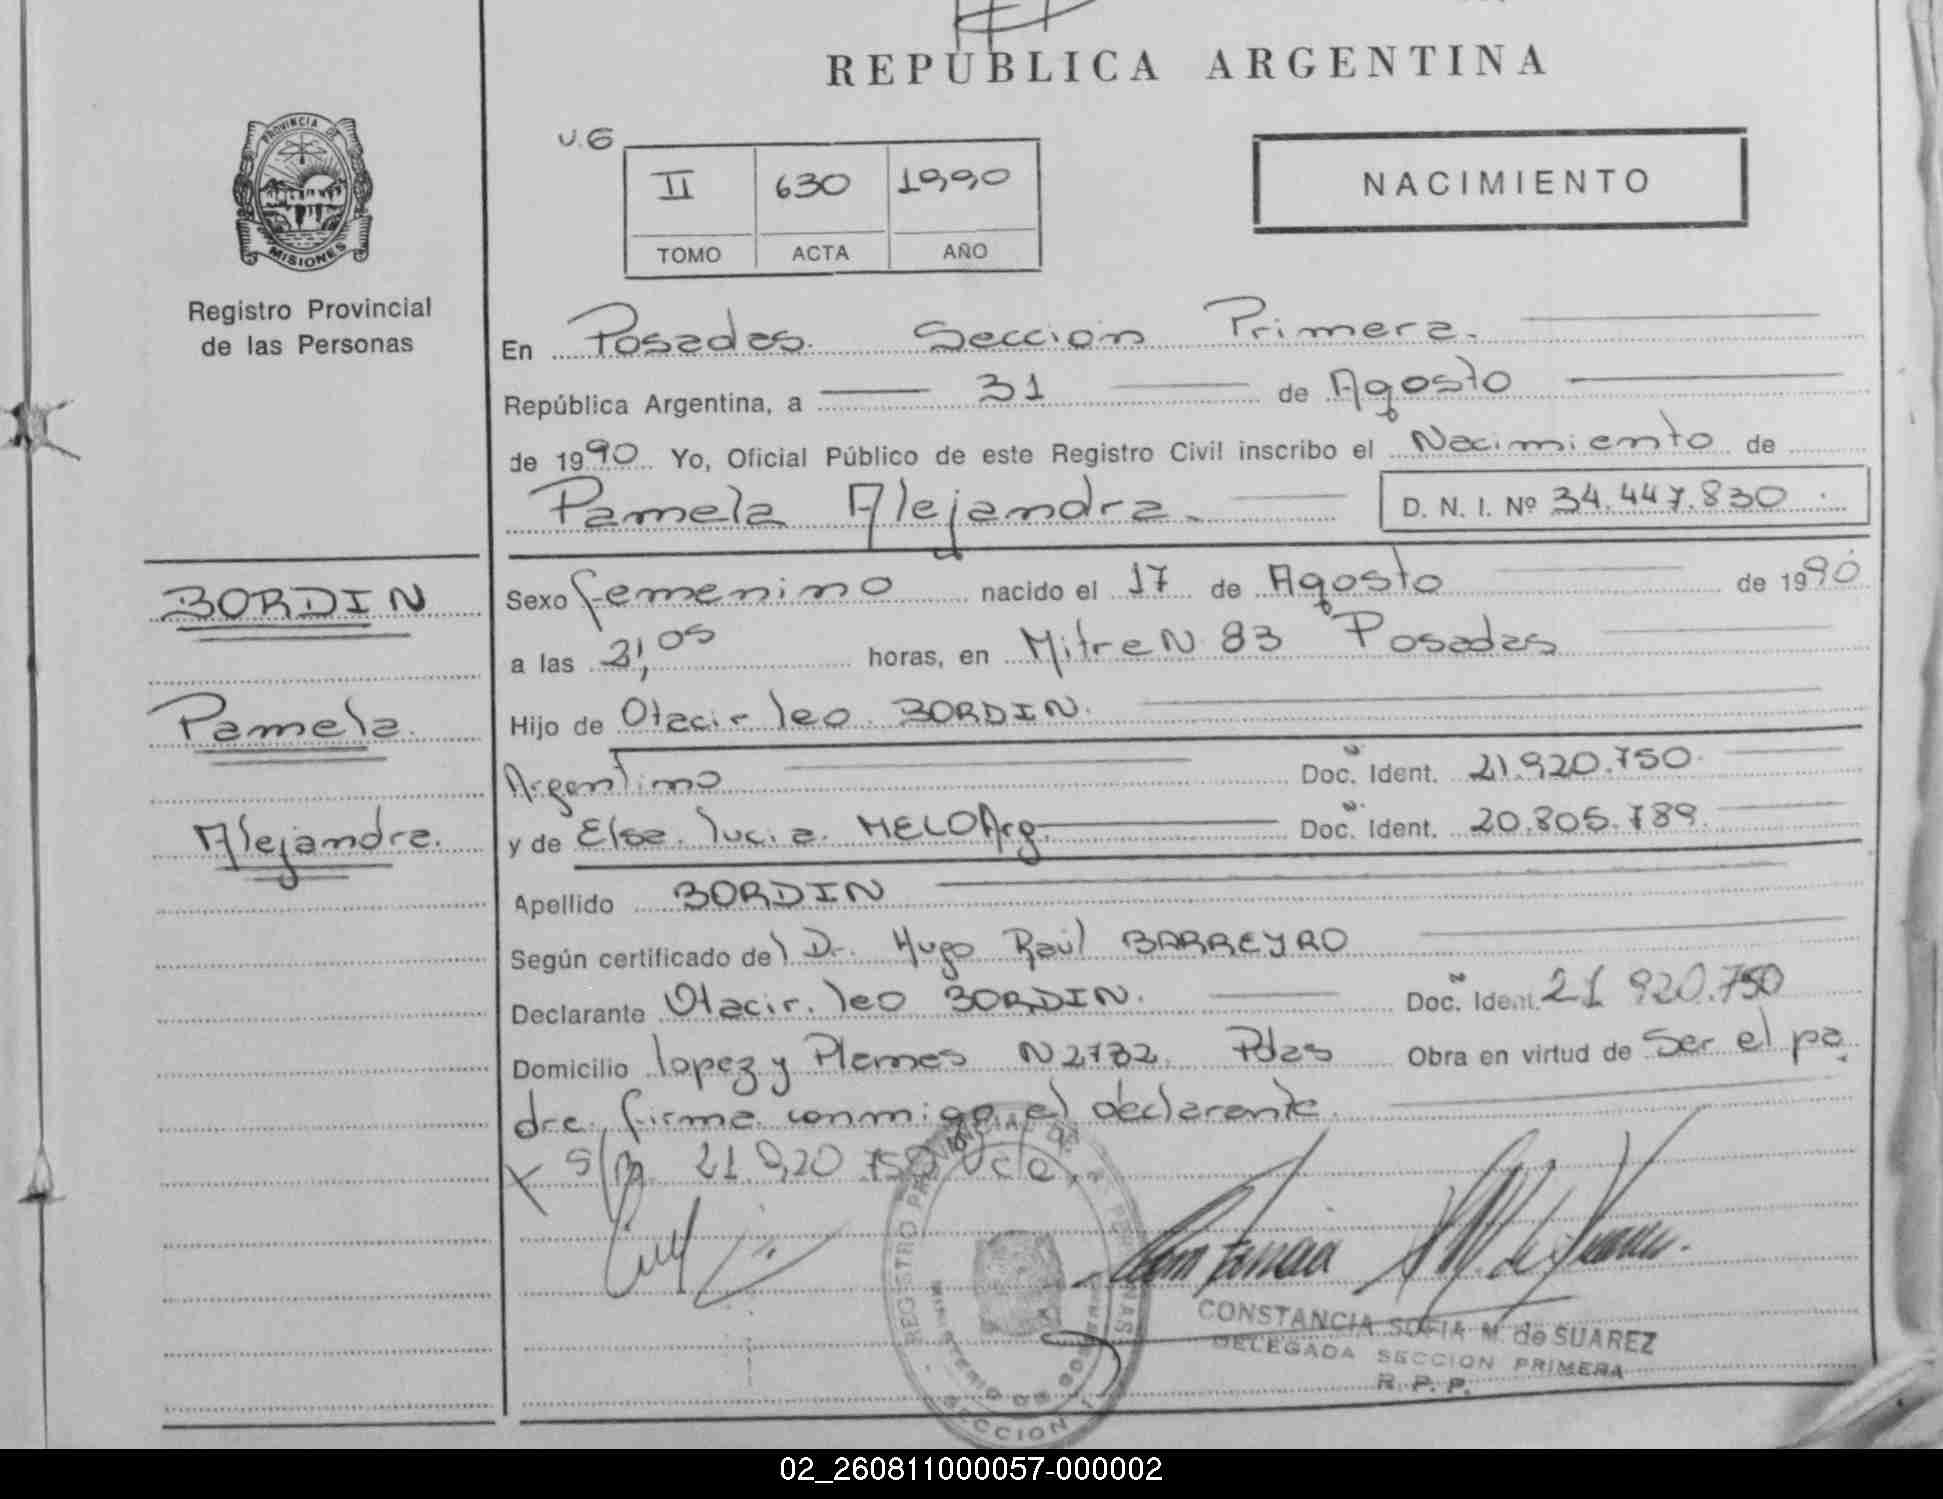 REPUBLICA ARGENTINA
PROVINCIA DE
MISIONES
Registro Provincial
de las Personas
v.6
II 630 1990
TOMO ACTA AÑO
NACIMIENTO
En Posadas. Sección Primera.
República Argentina, a 31 de Agosto
de 1990 Yo, Oficial Público de este Registro Civil inscribo el Nacimiento de
Pamela Alejandra.
D. N. I. Nº 34.447.830
BORDIN
Pamela.
Alejandra.
Sexo femenino nacido el 17 de Agosto de 1990
a las 21,05 horas, en Mitre N 83 Posadas
Hijo de Otacir leo BORDIN.
Argentino Doc. Ident. 21.920.750.
y de Elsa. lucia. MELO Arg. Doc. Ident. 20.805.789.
Apellido BORDIN
Según certificado del Dr. Hugo Raúl BARREYRO
Declarante Otacir. leo BORDIN. Doc. Ident. 21 920.750
Domicilio lopez y Planes N 2732. Pdas Obra en virtud de Ser el pa
dre, firma conmigo el declarante.
21.920.750
CONSTANCIA SOFIA M. de SUAREZ
DELEGADA SECCION PRIMERA
R. P. P.
REGISTRO PROVINCIAL DE
SECCION 1
02_260811000057-000002